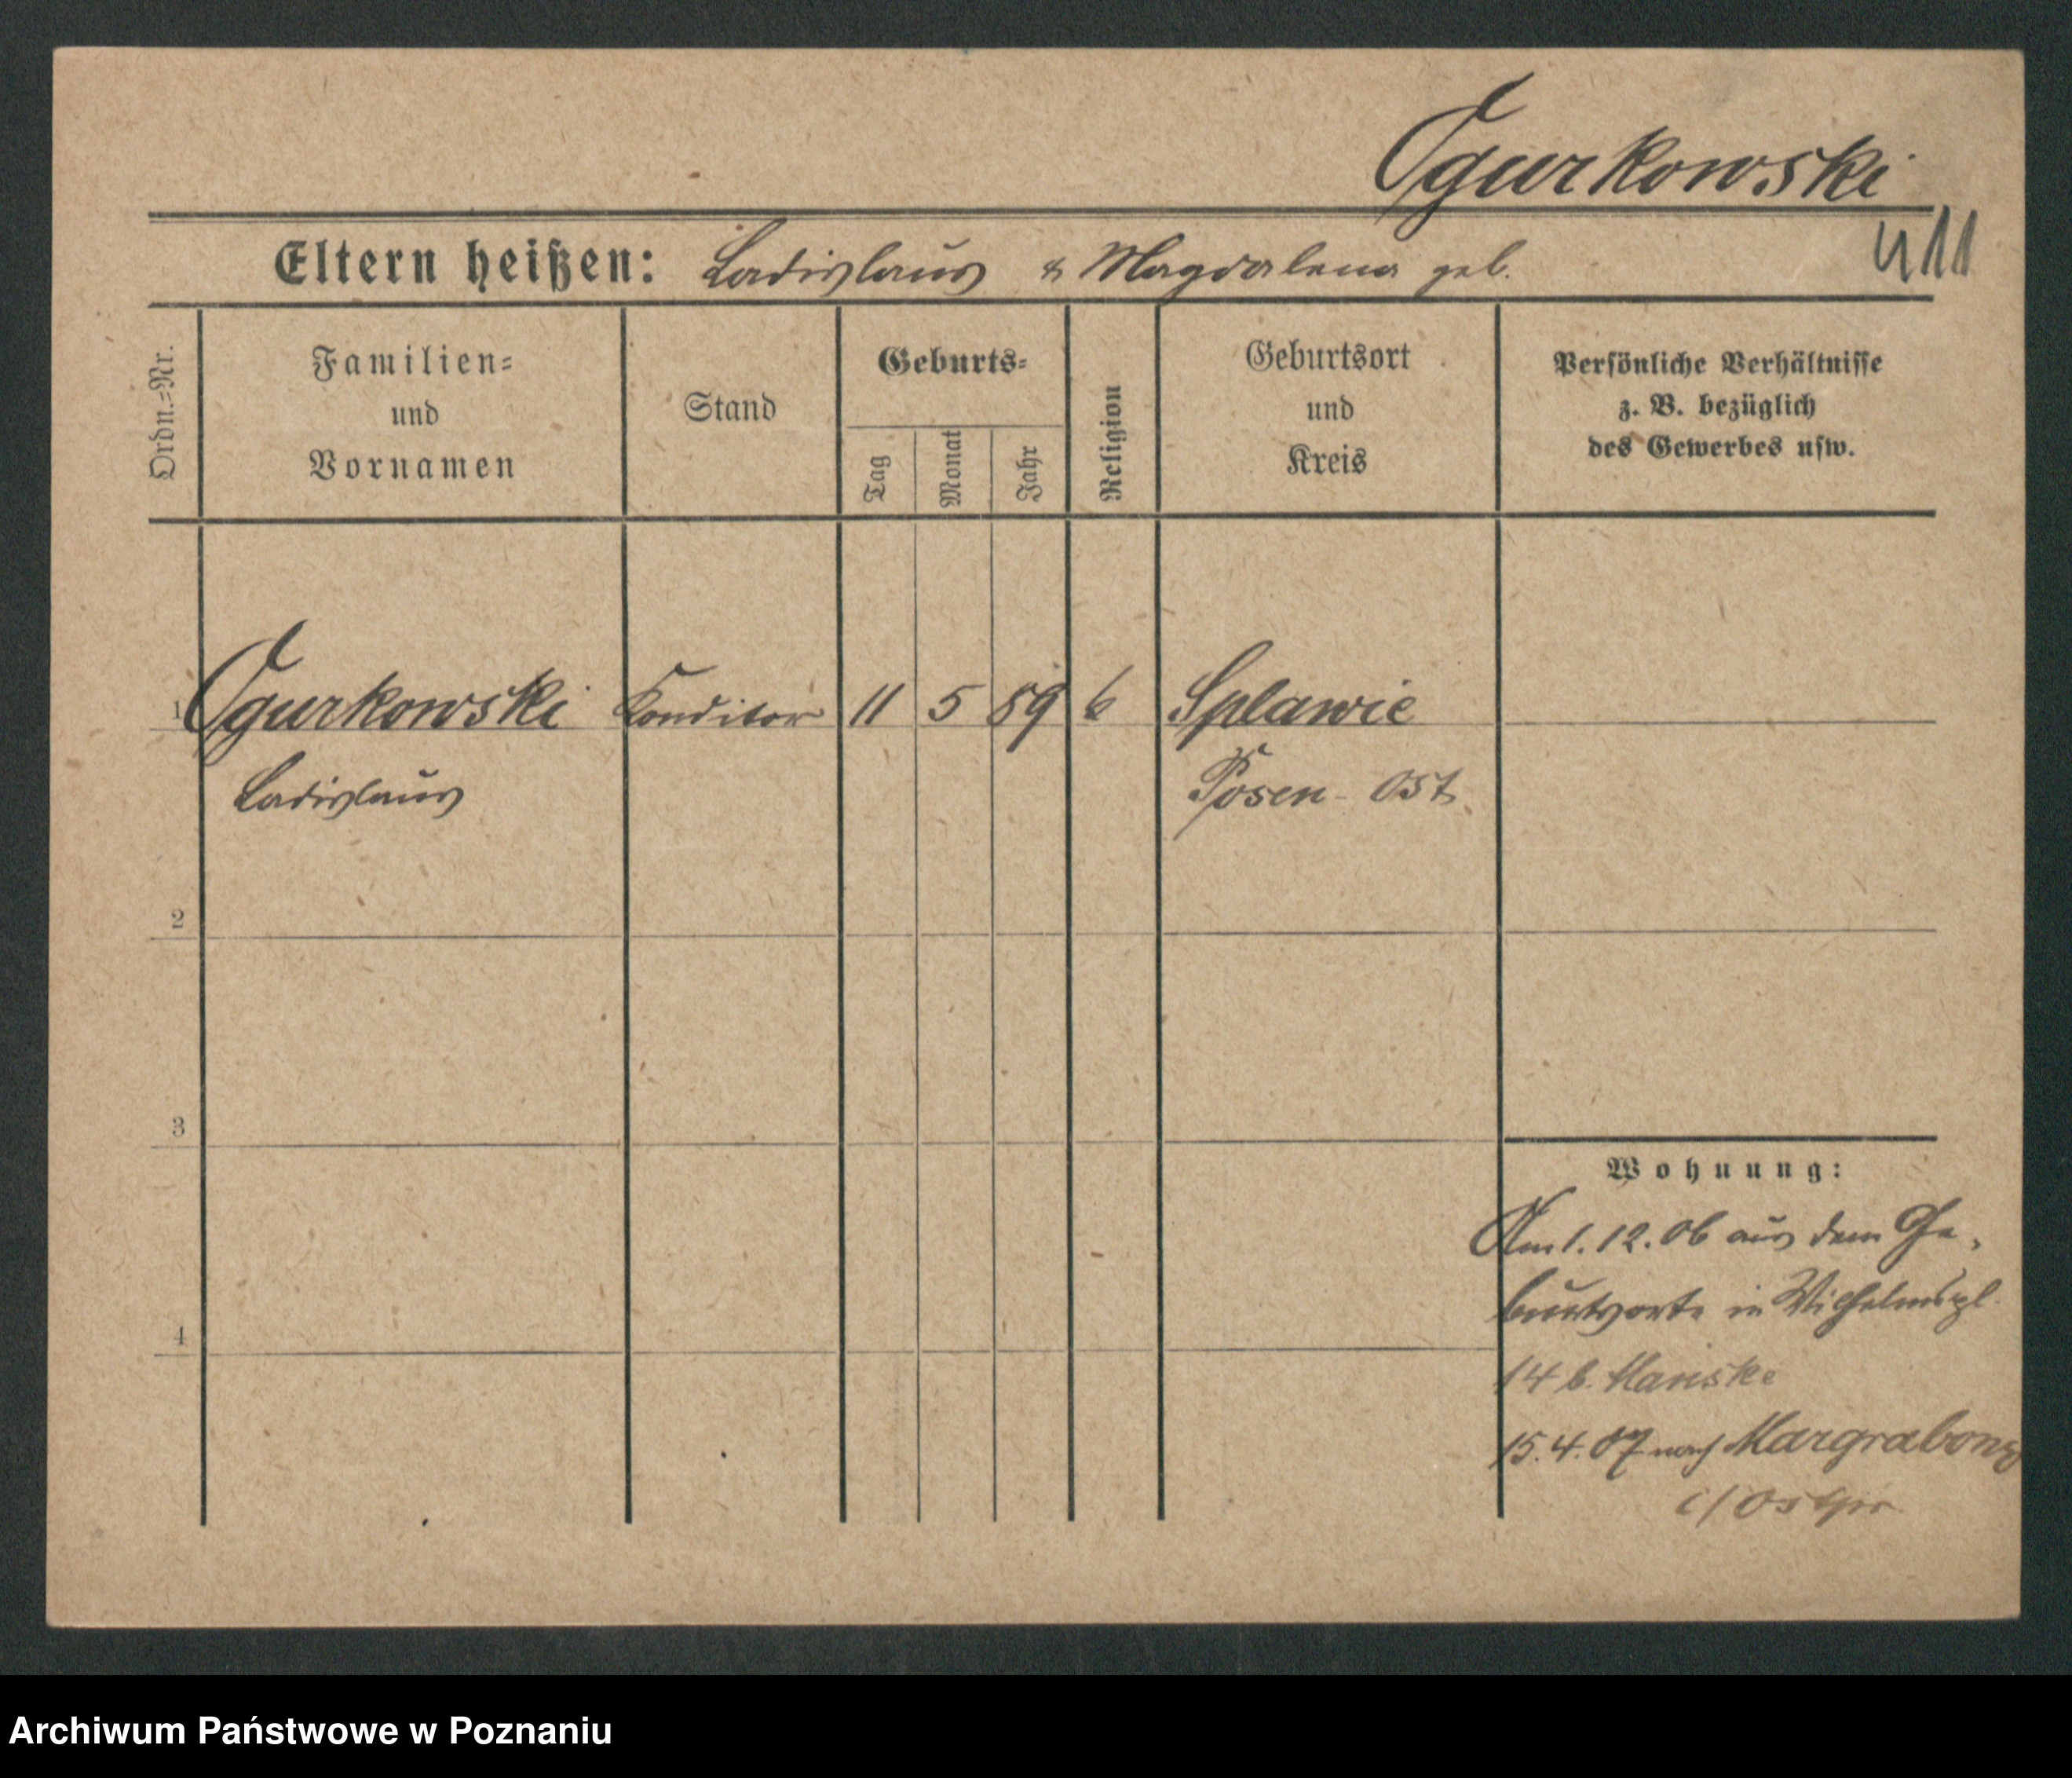 Ogurkowski
411
Eltern heißen: Ladislaus & Magdalena geb.
Ordn.=Nr.
Familien=
und
Vornamen
Stand
Geburts=
Tag
Monat
Jahr
Religion
Geburtsort
und
Kreis
Persönliche Verhältnisse
z. B. bezüglich
des Gewerbes usw.
1 Ogurkowski Konditor 11 5 89 k Splawie
Ladislaus Posen-Ost
2
3
4
Wohnung:
Am 1.12.06 aus dem Ge-
burtsorte in Wilhelmspl.
14 b. Manske
15.4.07 nach Margrabowa
i/Ostpr.
Archiwum Państwowe w Poznaniu